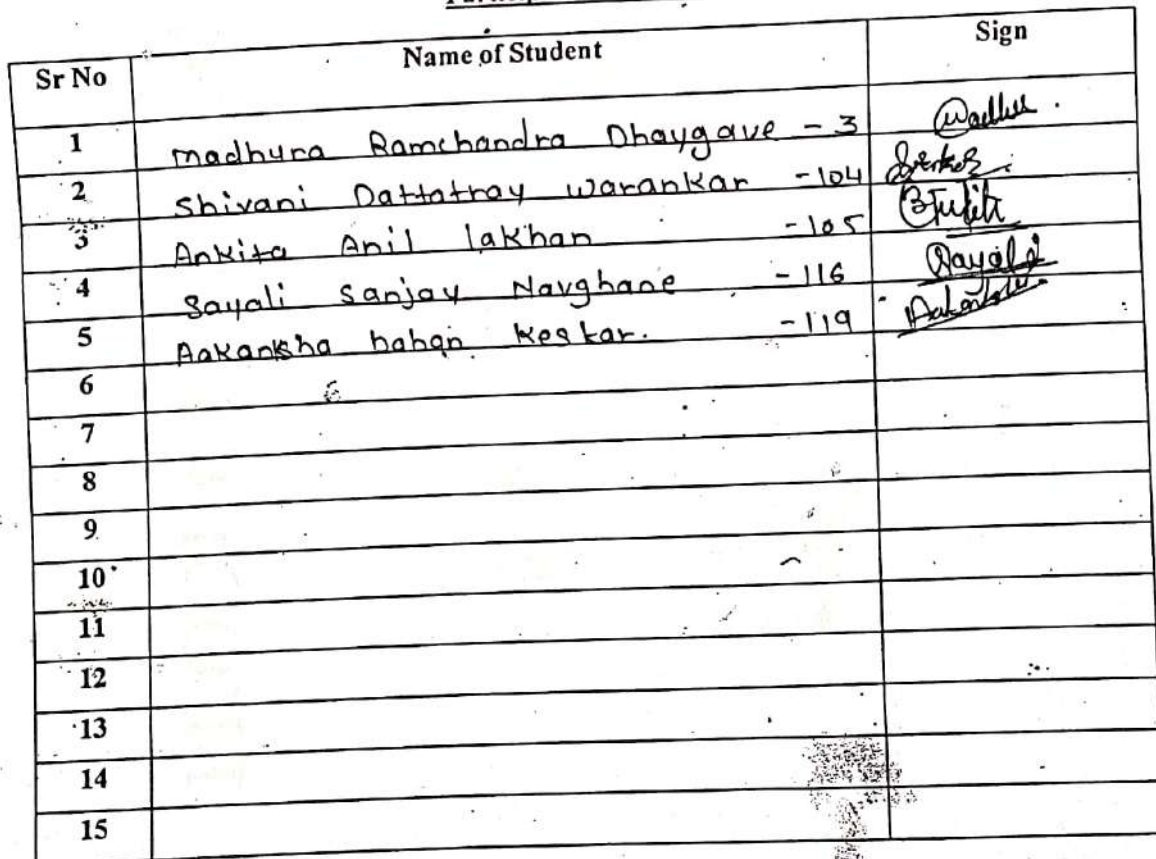 Sr No Name of Student Sign
1 Madhura Ramchandra Dhaygave - 3
2 Shivani Dattatray Warankar - 104
3 Ankita Anil lakhan - 105
4 Sayali Sanjay Navghane - 116 Sayali
5 Aakansha baban Keskar. - 119
6
7
8
9
10
11
12
13
14
15